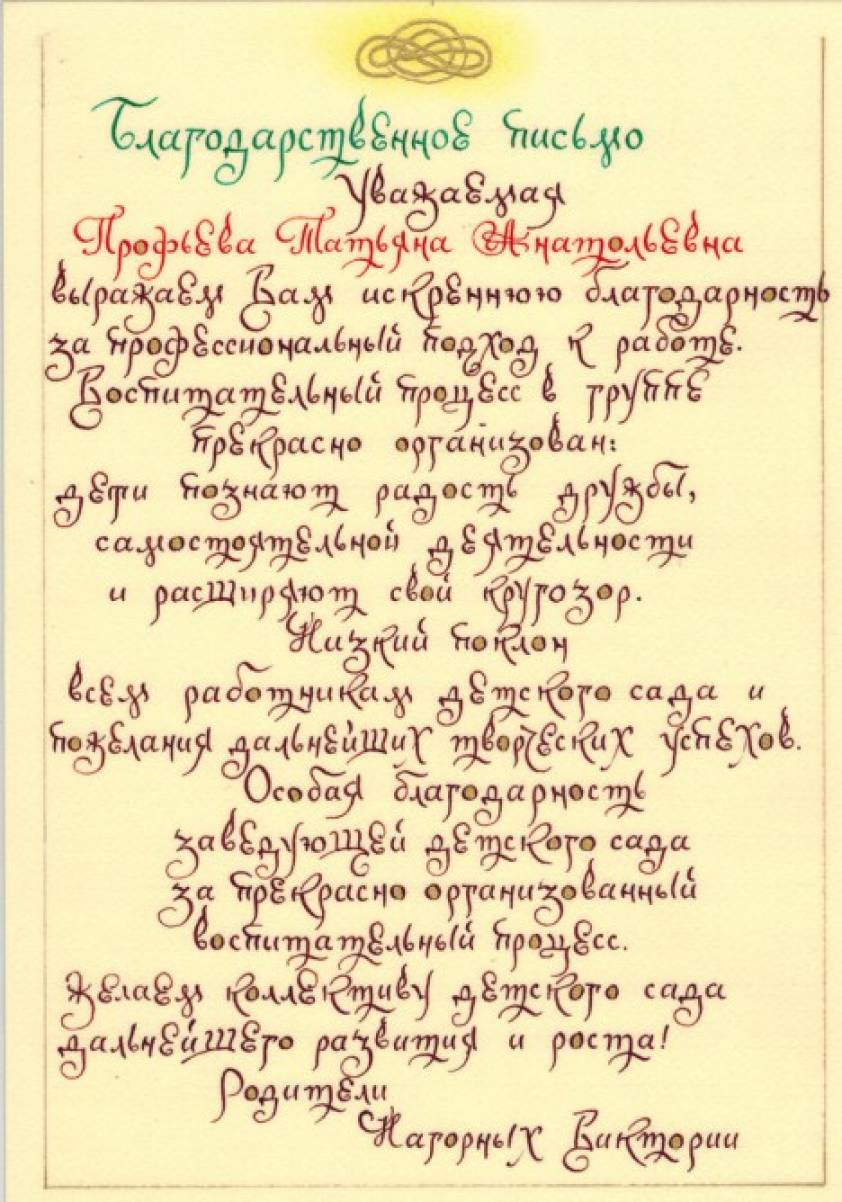 Благодарственное письмо
Уважаемая
Профьева Татьяна Анатольевна
выражаем Вам искреннюю благодарность
за профессиональный подход к работе.
Воспитательный процесс в группе
прекрасно организован:
дети познают радость дружбы,
самостоятельной деятельности
и расширяют свой кругозор.
Низкий поклон
всем работникам детского сада и
пожелания дальнейших творческих успехов.
Особая благодарность
заведующей детского сада
за прекрасно организованный
воспитательный процесс.
Желаем коллективу детского сада
дальнейшего развития и роста!
Родители
Нагорных Виктории